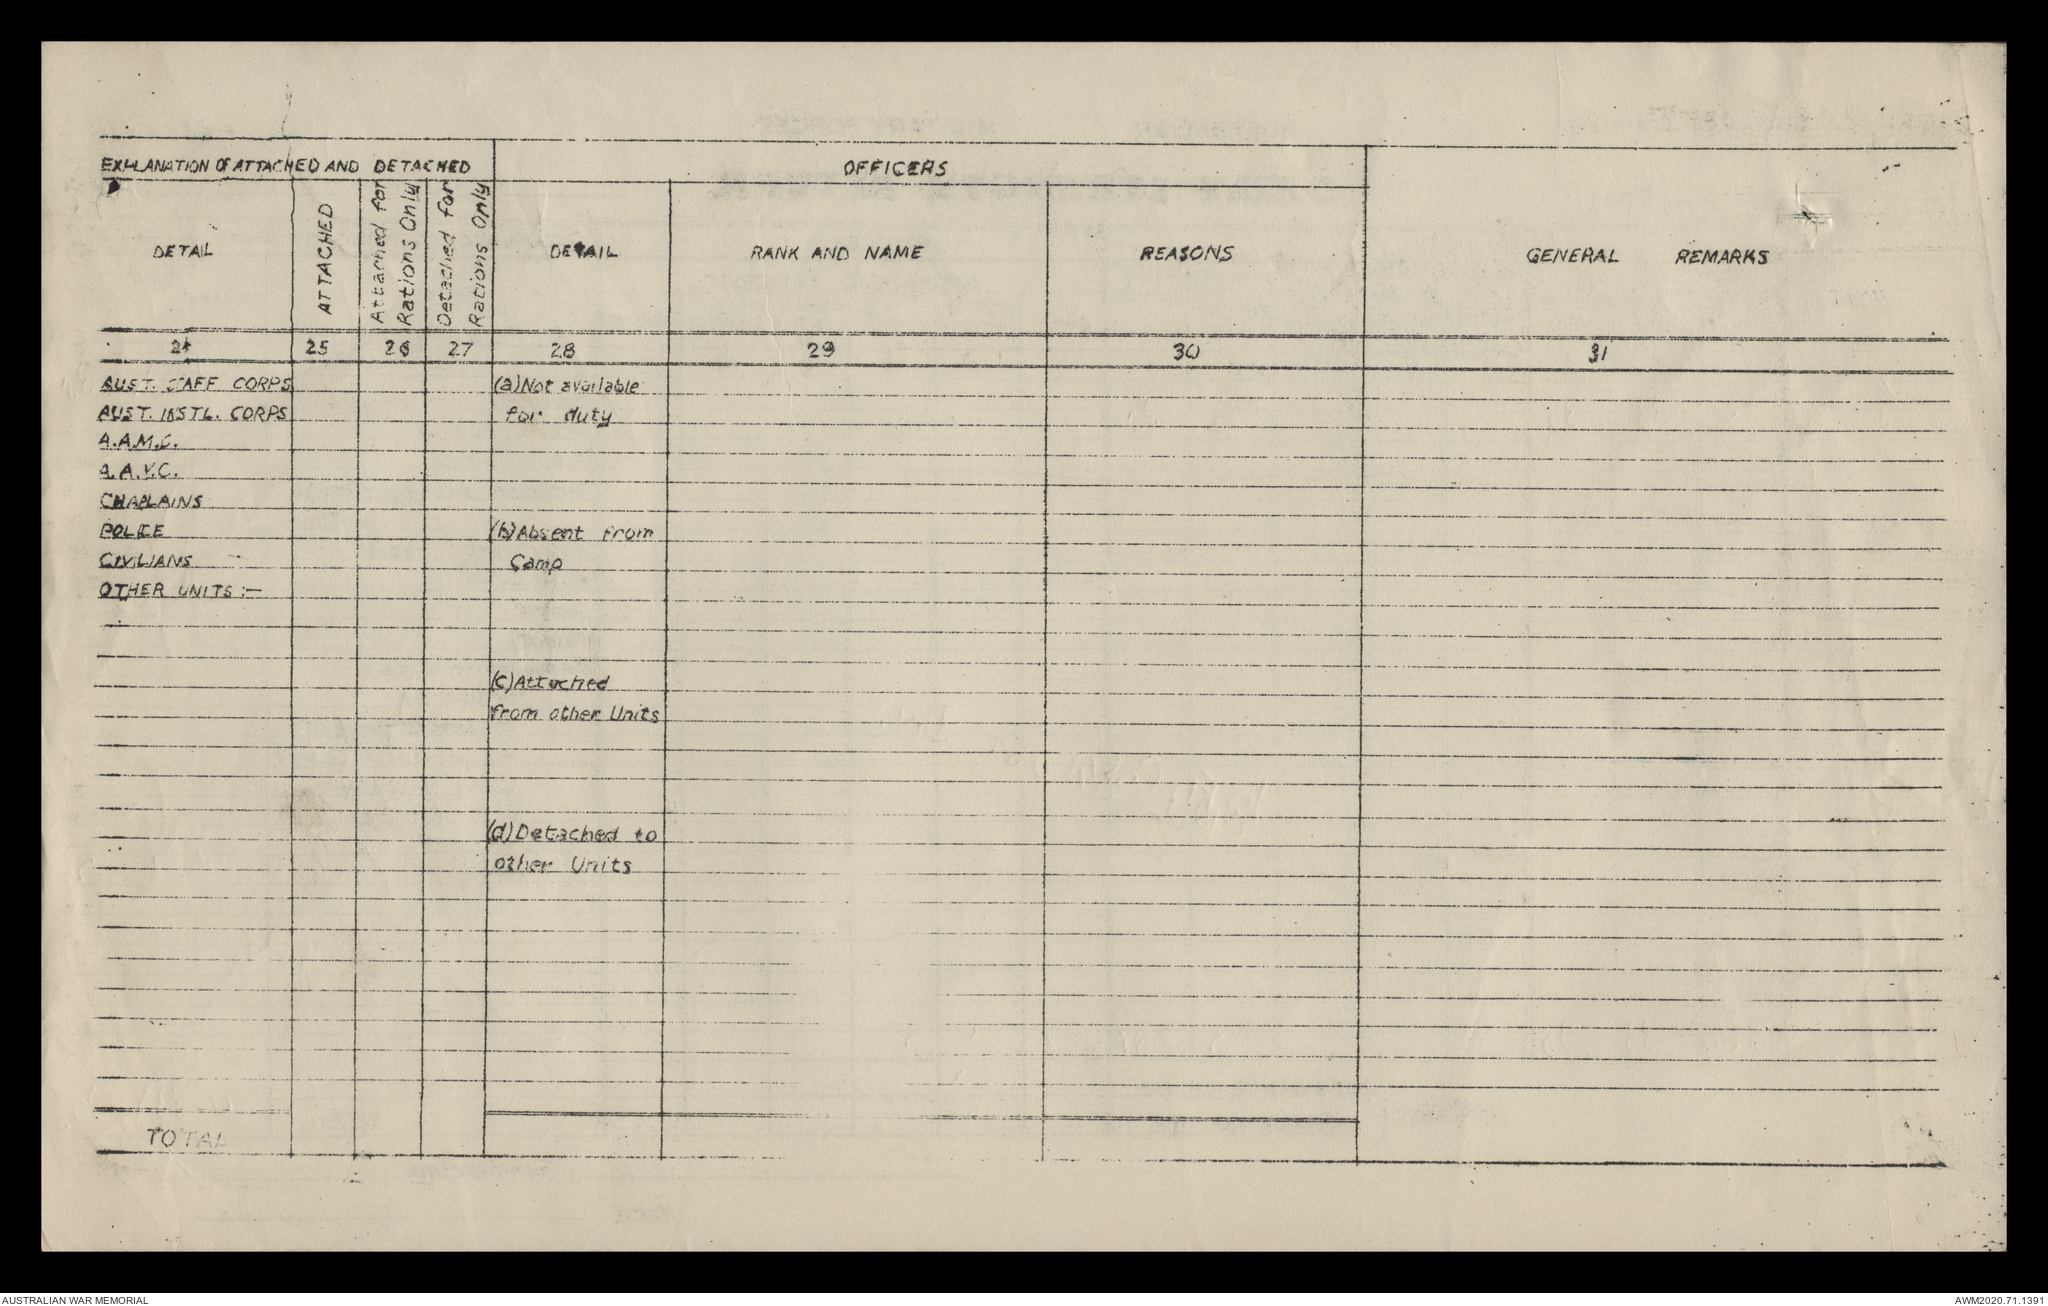 EXPLANATION OF ATTACHED AND DETACHED
OFFICERS
DETAIL
ATTACHED
Attached for
Rations Only
Detached for
Rations Only
DETAIL
RANK AND NAME
REASONS
GENERAL REMARKS
24 25 26 27 28 29 30 31
AUST. STAFF CORPS
(a) Not available
AUST. INSTL. CORPS
for duty
A.A.M.C.
A.A.V.C.
CHAPLAINS
POLICE
(b) Absent from
CIVILIANS
Camp
OTHER UNITS :-
(c) Attached
from other Units
(d) Detached to
other Units
TOTAL
AUSTRALIAN WAR MEMORIAL
AWM2020.71.1391